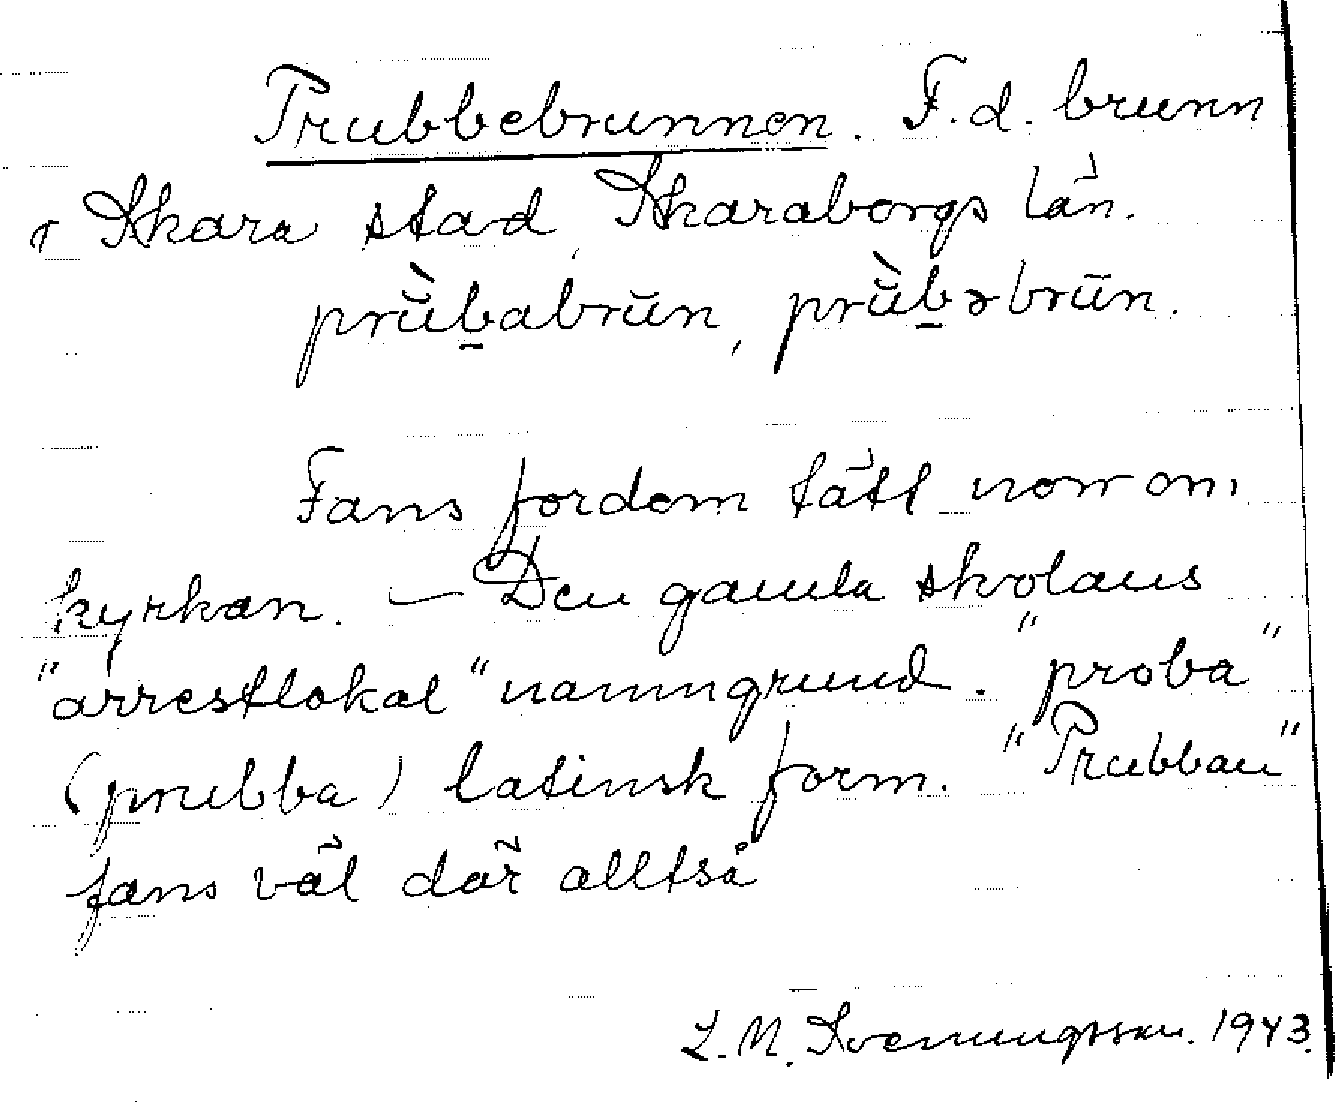 Prubbebrunnen. F.d. brunn
i Skara stad, Skaraborgs län.
prùbabrūn, prùbəbrūn.
Fans fordom tätt norr om
kyrkan. — Den gamla skolans
"arrestlokal" namngrund. "proba"
(prubba) latinsk form. "Prubban"
fans väl där alltså
L. M. Svenungsson. 1943.